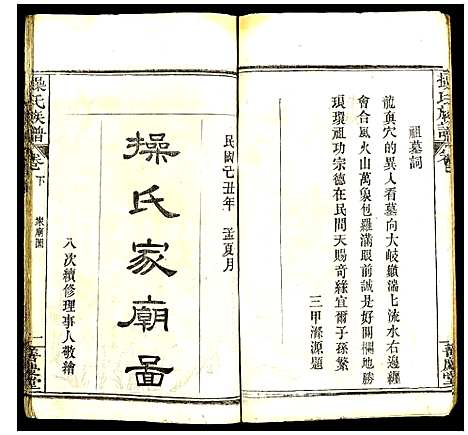 操氏族譜
卷
祖墓詞
龍真穴的異人看墓向大岐嶽湍上流水右邊纏
會合風火山萬象包羅滿眼前誠是好開欄地勝
瑯環祖功宗德在民間天賜奇緣宜爾子孫繁
三甲 源題
善慶堂
民國己丑年 孟夏月
操氏家廟圖
八次續修理事人敬繪
操氏族譜
卷下
宗廟圖
一
善慶堂